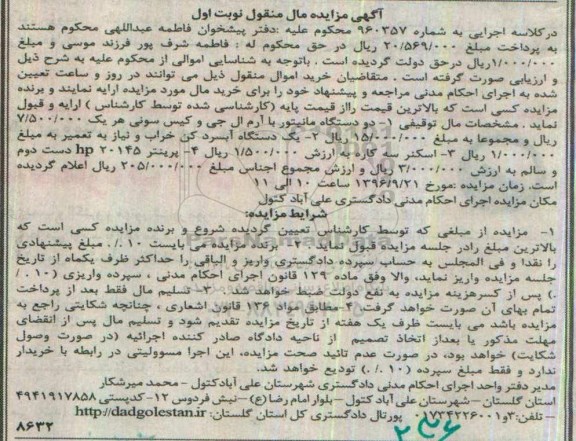 آگهی مزایده مال منقول نوبت اول
درکلاسه اجرایی به شماره ۹۶۰۳۵۷ محکوم علیه :دفتر پیشخوان فاطمه عبداللهی محکوم هستند
به پرداخت مبلغ ۲۰/۵۶۹/۰۰۰ ریال در حق محکوم له : فاطمه شرف پور فرزند موسی و مبلغ
۱/۰۰۰/۰۰۰ریال درحق دولت گردیده است . باتوجه به شناسایی اموالی از محکوم علیه به شرح ذیل
و ارزیابی صورت گرفته است . متقاضیان خرید اموال منقول ذیل می توانند در روز و ساعت تعیین
شده به اجرای احکام مدنی مراجعه و پیشنهاد خود را برای خرید مال مورد مزایده ارایه نمایند و برنده
مزایده کسی است که بالاترین قیمت رااز قیمت پایه (کارشناسی شده توسط کارشناس ) ارایه و قبول
نماید . مشخصات مال توقیفی ۱- دو دستگاه مانیتور با آرم ال جی و کیس سونی هر یک ۷/۵۰۰/۰۰۰
ریال و مجموعا به مبلغ ۱۵/۰۰۰/۰۰۰ ریال ۲- یک دستگاه آبسرد کن خراب و نیاز به تعمیر به مبلغ
۱/۰۰۰/۰۰۰ ریال ۳- اسکنر سه کاره به ارزش ۱/۵۰۰/۰۰۰ ریال ۴- پرینتر hp ۲۰۱۴۵ دست دوم
و سالم به ارزش ۳/۰۰۰/۰۰۰ ریال و ارزش مجموع اجناس مبلغ ۲۰۵/۰۰۰/۰۰۰ ریال اعلام گردیده
است. زمان مزایده :مورخ ۱۳۹۶/۹/۲۱ ساعت ۱۰ الی ۱۱
مکان مزایده اجرای احکام مدنی دادگستری علی آباد کتول
شرایط مزایده:
۱- مزایده از مبلغی که توسط کارشناس تعیین گردیده شروع و برنده مزایده کسی است که
بالاترین مبلغ رادر جلسه مزایده قبول نماید ۲- برنده مزایده می بایست ۱۰ ./. مبلغ پیشنهادی
را نقدا و فی المجلس به حساب سپرده دادگستری واریز و الباقی را حداکثر ظرف یکماه از تاریخ
جلسه مزایده واریز نماید، والا وفق ماده ۱۲۹ قانون اجرای احکام مدنی ، سپرده واریزی (۱۰ ./
.) پس از کسرهزینه مزایده به نفع دولت ضبط خواهد شد. ۳- تسلیم مال فقط بعد از پرداخت
تمام بهای آن صورت خواهد گرفت. ۴-مطابق مواد ۱۳۶ قانون اشعاری ، چنانچه شکایتی راجع به
مزایده باشد می بایست ظرف یک هفته از تاریخ مزایده تقدیم شود و تسلیم مال پس از انقضای
مهلت مذکور یا بعداز اتخاذ تصمیم از ناحیه دادگاه صادر کننده اجرائیه (در صورت وصول
شکایت) خواهد بود، در صورت عدم تائید صحت مزایده، این اجرا مسوولیتی در رابطه با خریدار
ندارد و فقط مبلغ سپرده (۱۰ ./.) تودیع خواهد شد.
مدیر دفتر واحد اجرای احکام مدنی دادگستری شهرستان علی آبادکتول - محمد میرشکار
استان گلستان-شهرستان علی آباد کتول -بلوار امام رضا (ع)-نبش فردوس ۱۲-کدپستی ۴۹۴۱۹۱۷۸۵۸
-تلفن:۳و۰۱۷۳۴۲۲۶۰۰۱ پورتال دادگستری کل استان گلستان: http://dadgolestan.ir
۸۶۳۲